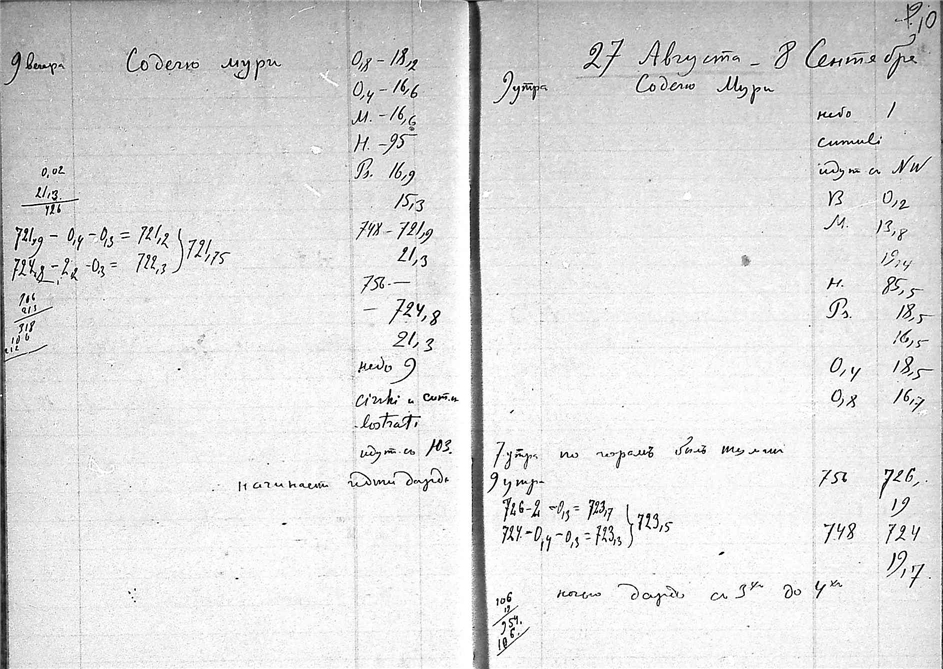 9 вечера Содегю мури
0,8 - 18,2
0,4 - 16,6
М. - 16,6
Н. - 95
Вз. 16,9
15,3
0,02
21,3
426
721,9 - 0,4 - 0,3 = 721,2
724,8 - 2,2 - 0,3 = 722,3 } 721,75
748 - 721,9
21,3
756 -
- 724,8
21,3
106
213
318
106
212
небо 9
cirrhi и cum.и
lostrati
идут съ ЮЗ.
начинает идти дождь
27 Августа - 8 Сентебре
9 утра Содегю Мури
небо 1
cumuli
идут съ NW
В 0,2
М. 13,8
19,4
Н. 85,5
Вз. 18,5
16,5
0,4 18,5
0,8 16,7
7 утра по горамъ былъ туман
9 утра
726 - 2 - 0,3 = 723,7
724 - 0,4 - 0,3 = 723,3 } 723,5
756 726,
19
748 724
19,7
ночью дождь съ 3 до 4
106
19
954
106